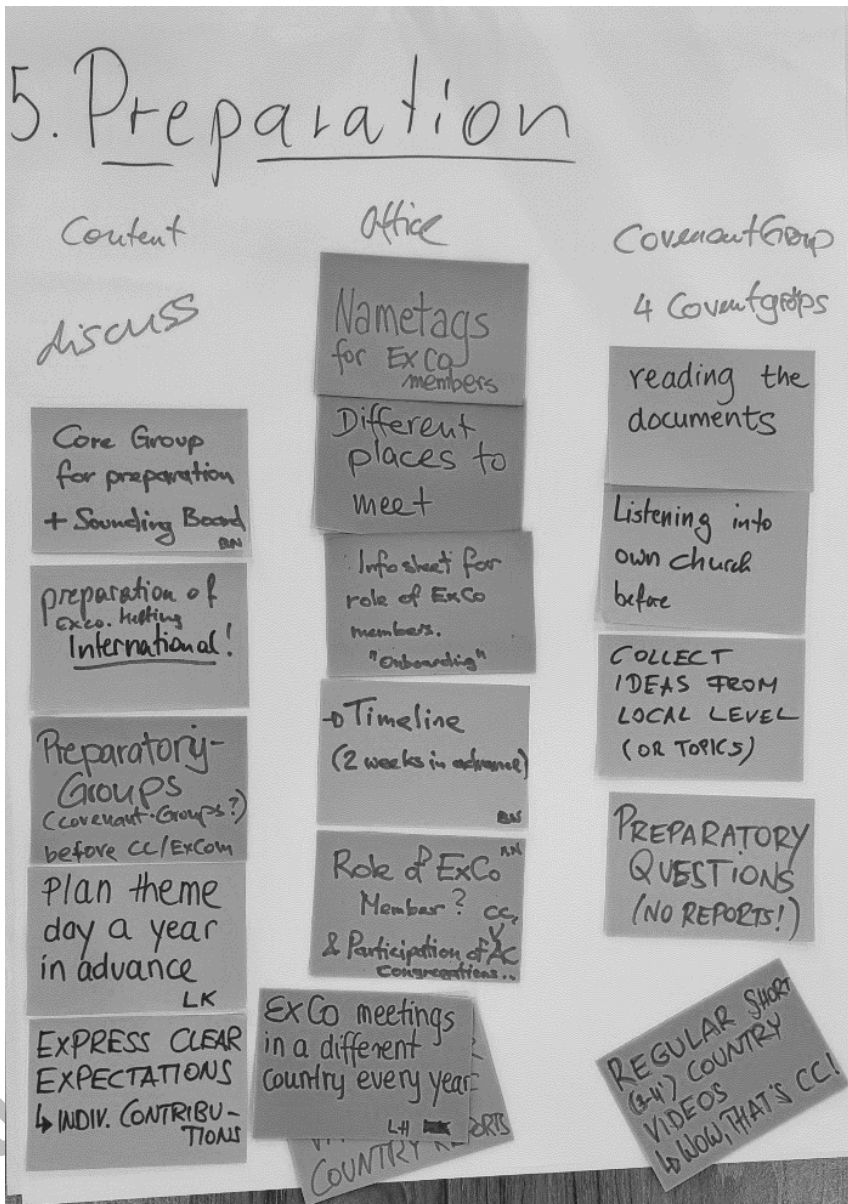 5. Preparation
Content
discuss
Core Group
for preparation
+ Sounding Board
BN
preparation of
ExCo. Meeting
International!
Preparatory-
Groups
(covenant-Groups?)
before CC/ExCom
Plan theme
day a year
in advance
LK
EXPRESS CLEAR
EXPECTATIONS
↳ INDIV. CONTRIBU-
TIONS
Office
Nametags
for ExCo
members
Different
places to
meet
Infosheet for
role of ExCo
members.
"Onboarding"
→ Timeline
(2 weeks in advance)
BN
Role of ExCo
RN
Member? CC,
& Participation of AC
Congregations..
ExCo meetings
in a different
country every year
LH
COUNTRY REPORTS
CovenantGroup
4 Coventgroups
reading the
documents
Listening into
own church
before
COLLECT
IDEAS FROM
LOCAL LEVEL
(OR TOPICS)
PREPARATORY
QUESTIONS
(NO REPORTS!)
REGULAR SHORT
COUNTRY
VIDEOS
↳ WOW, THAT'S CC!